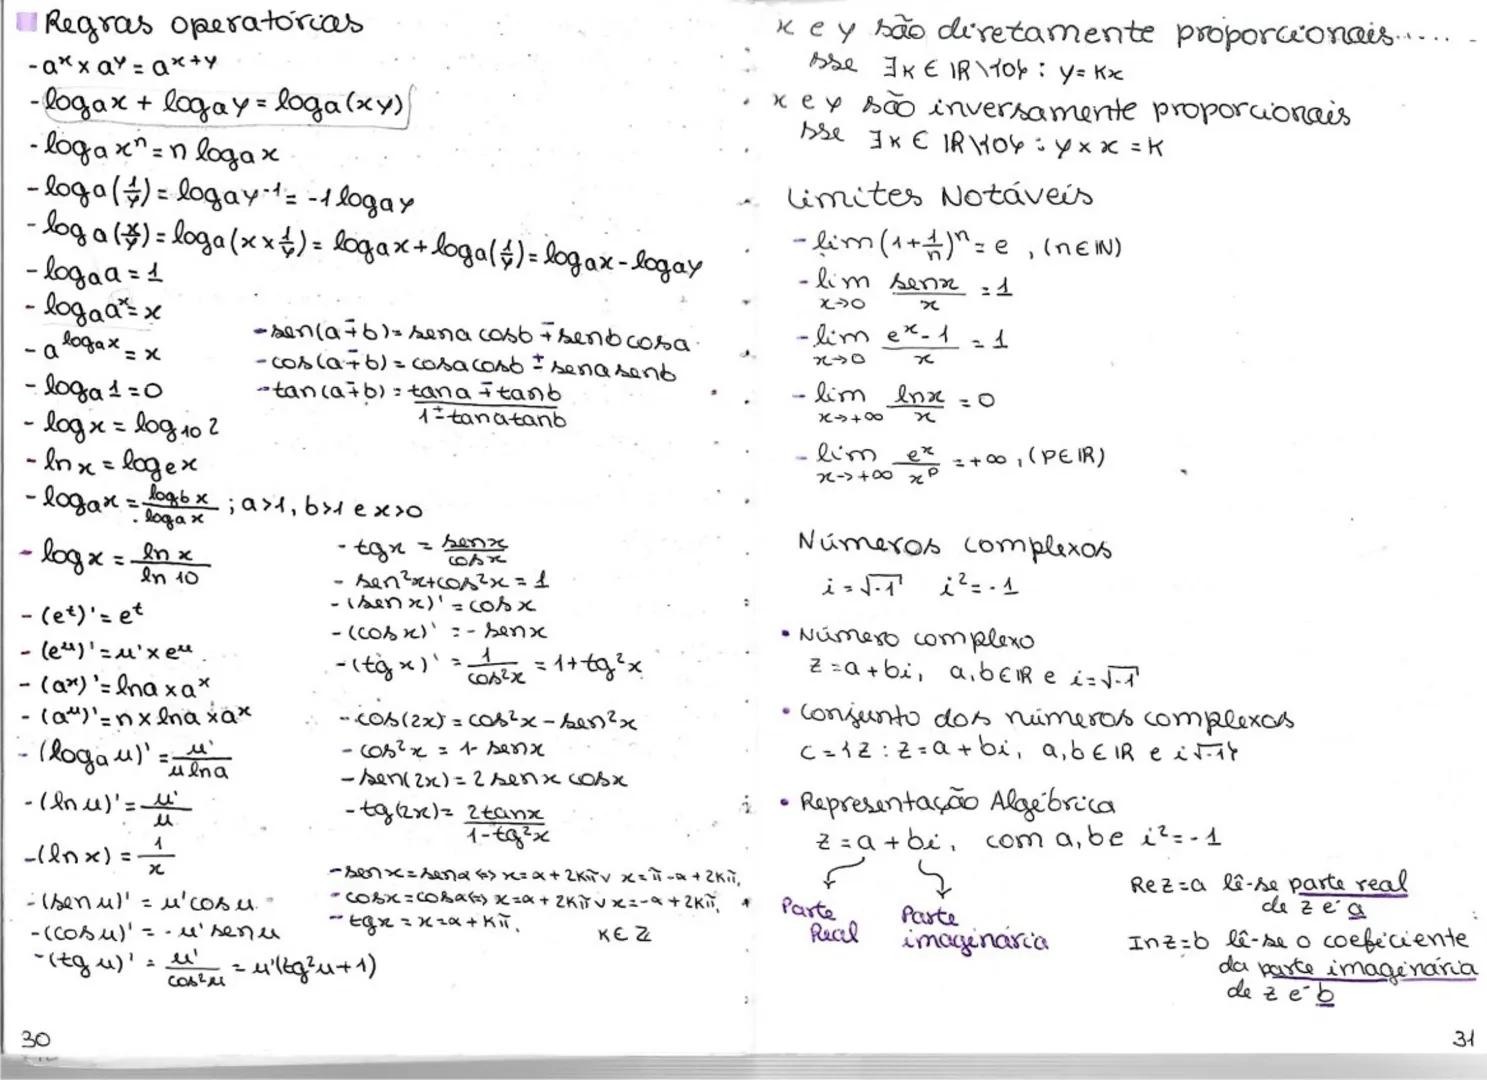 Regras operatórias
- aˣ x aʸ = aˣ⁺ʸ
- logax + logay = loga(xy)
- logaxⁿ = n logax
- loga(1/y) = logay⁻¹ = -1 logay
- loga(x/y) = loga(x x 1/y) = logax + loga(1/y) = logax - logay
- logaa = 1
- logaaˣ = x
- a^logax = x
- loga1 = 0
- logx = log10 2
- lnx = logex
- logax = logbx/logax ; a>1, b>1 e x>0
- logx = ln x/ln 10
- (eᵗ)' = eᵗ
- (eᵘ)' = u' x eᵘ
- (aˣ)' = lna x aˣ
- (aᵘ)' = n x lna x aˣ
- (logau)' = u'/u lna
- (ln u)' = u'/u
- (ln x) = 1/x
- (sen u)' = u' cos u
- (cos u)' = - u' sen u
- (tg u)' = u'/cos²u = u'(tg²u+1)
- sen(a∓b) = sena cosb ∓ senb cosa
- cos(a∓b) = cosa cosb ± sena senb
- tan(a∓b) = tana ∓ tanb/1 ± tanatanb
- tgx = senx/cosx
- sen²x+cos²x = 1
- (sen x)' = cos x
- (cos x)' = - senx
- (tg x)' = 1/cos²x = 1+tg²x
- cos(2x) = cos²x - sen²x
- cos²x = 1- senx
- sen(2x) = 2 senx cosx
- tg(2x) = 2tanx/1-tg²x
- senx = senα ⇔ x = α + 2Kπ v x = π - α + 2Kπ,
- cosx = cosα ⇔ x = α + 2Kπ v x = -α + 2Kπ,
- tgx = x = α + Kπ,
K∈Z
30
x e y são diretamente proporcionais.....
sse ∃K ∈ IR\{0} : y = Kx
• x e y são inversamente proporcionais
sse ∃K ∈ IR\{0} : y x x = K
Limites Notáveis
- lim (1+1/n)ⁿ = e , (n∈IN)
- lim x→0 senx/x = 1
- lim x→0 eˣ-1/x = 1
- lim x→+∞ lnx/x = 0
- lim x→+∞ eˣ/xᵖ = +∞, (P∈IR)
Números complexos
i = √-1 i² = -1
• Número complexo
z = a + bi, a,b∈IR e i = √-1
• Conjunto dos números complexos
C = {z : z = a + bi, a,b∈IR e i√-1}
• Representação Algébrica
z = a + bi, com a,b e i² = -1
Parte Real
Parte imaginária
Re z = a lê-se parte real
de z é a
In z = b lê-se o coeficiente
da parte imaginária
de z é b
31